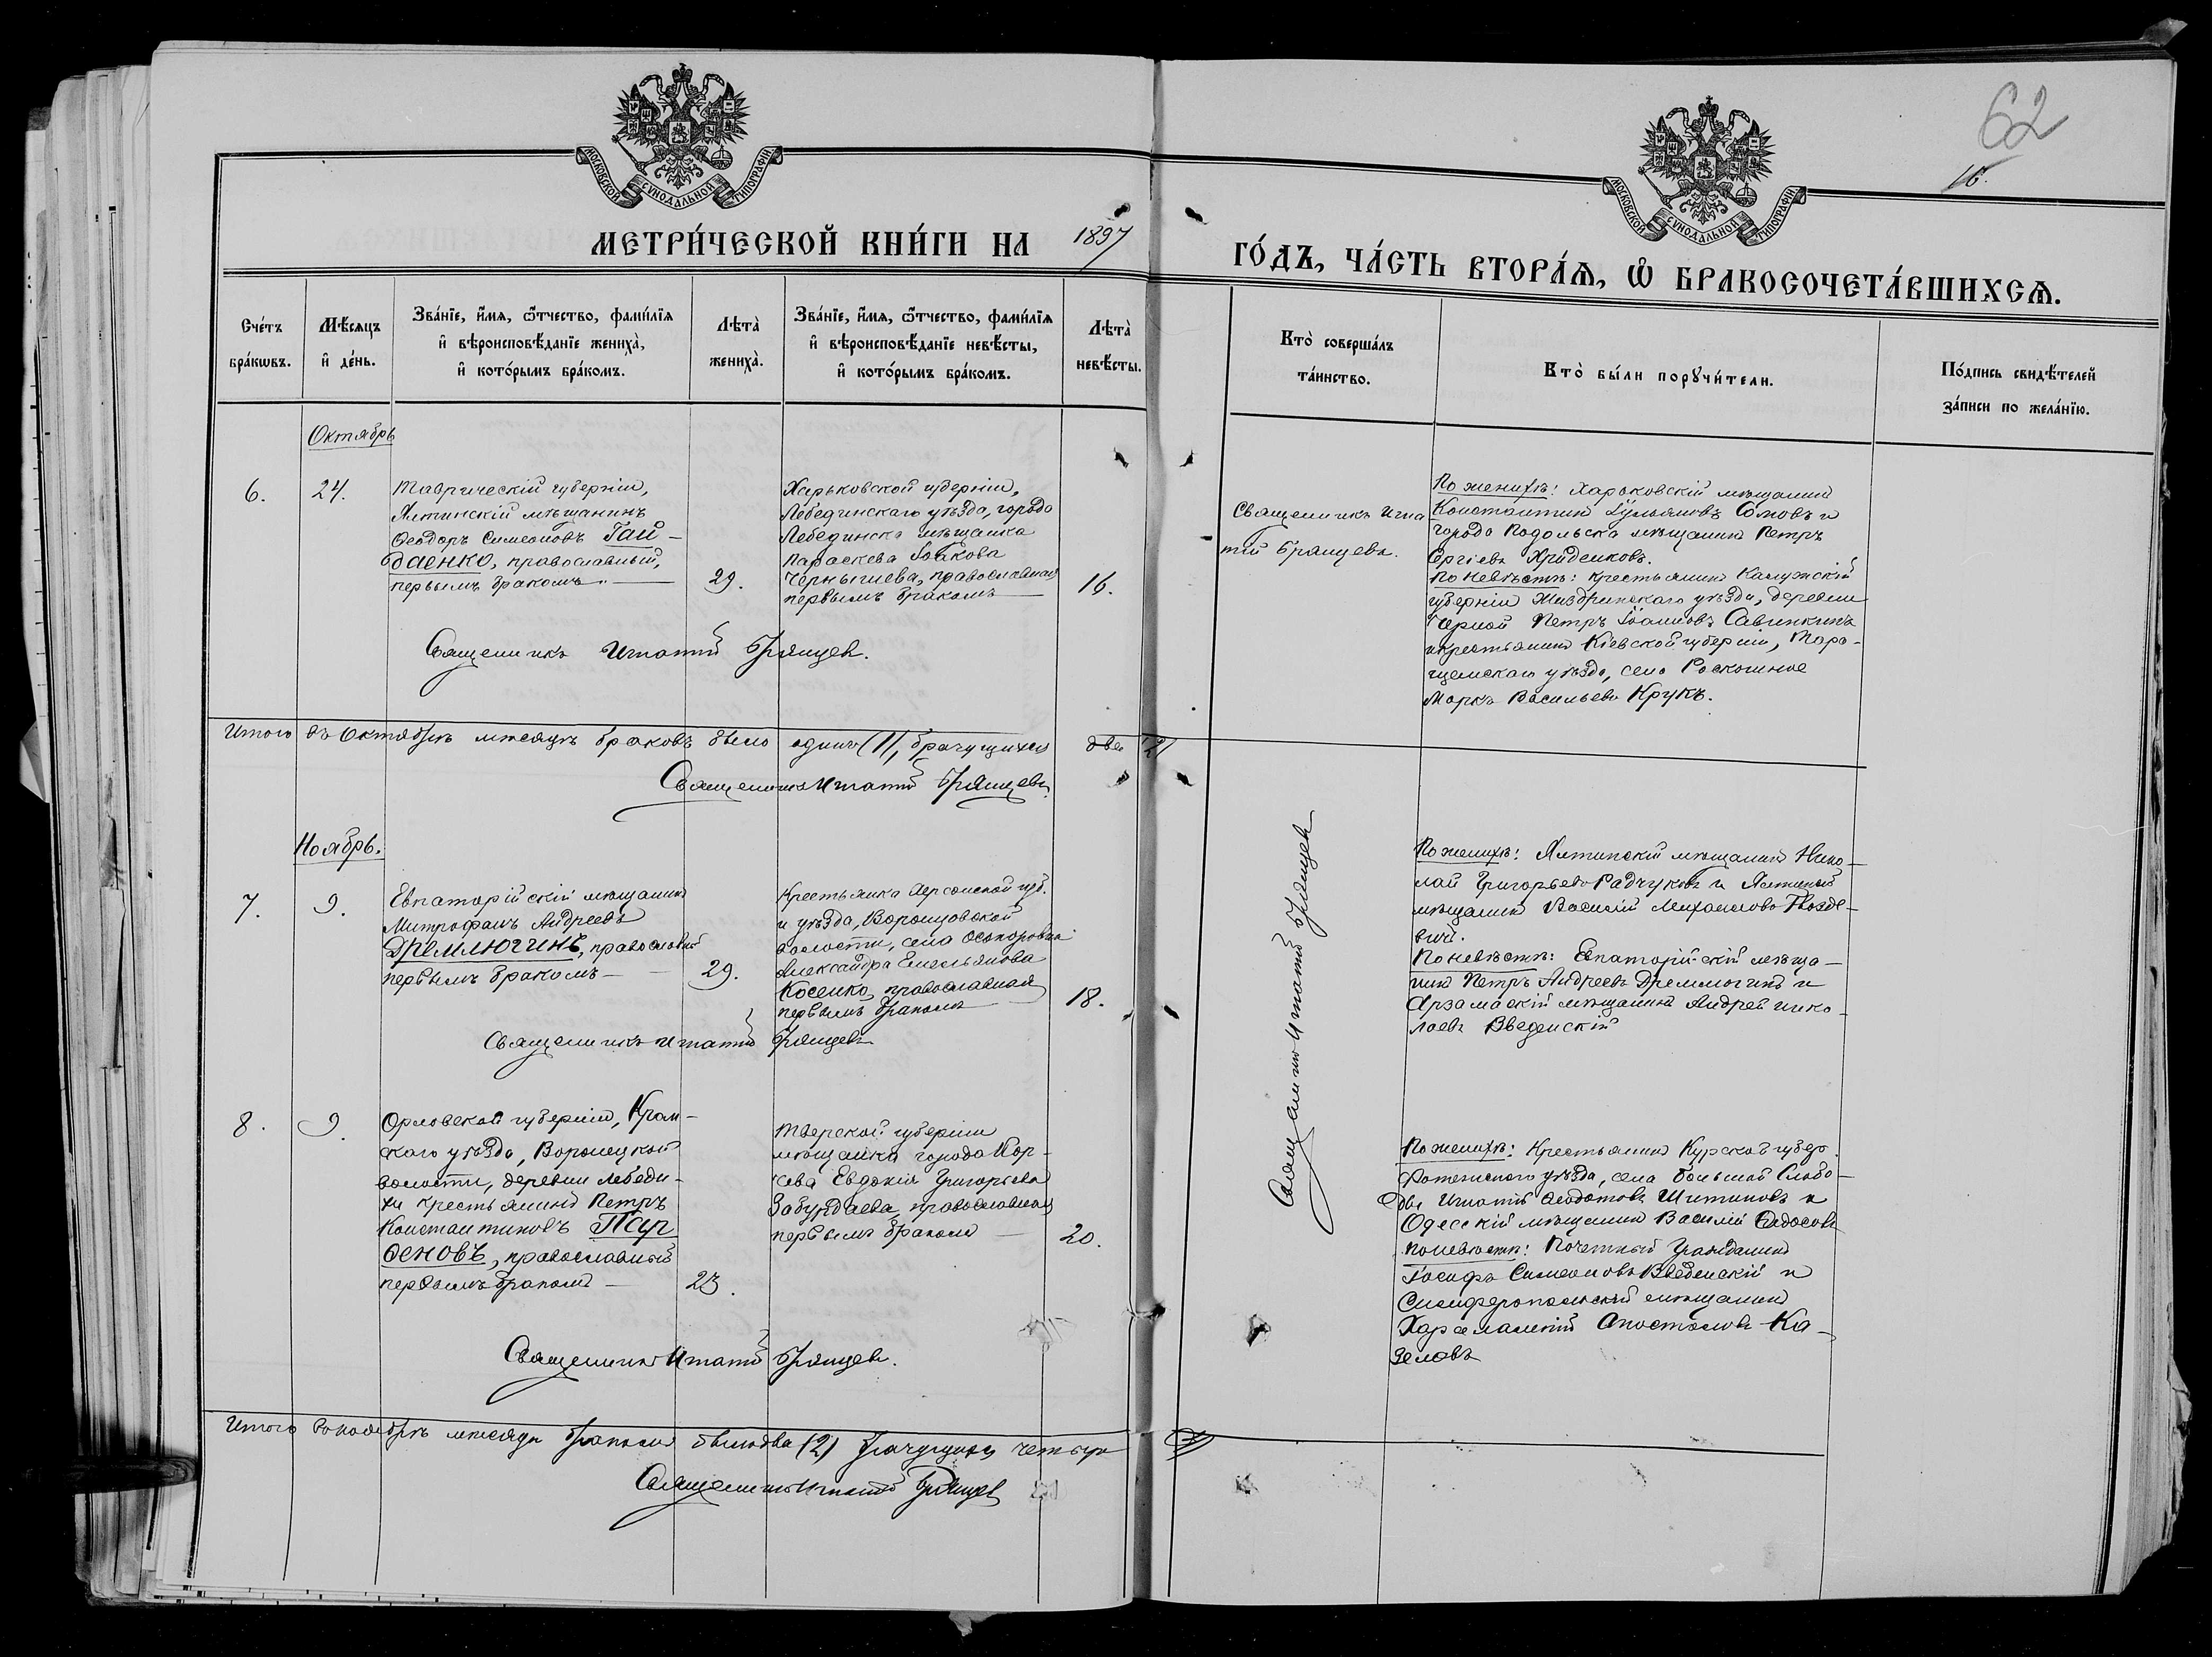 МОСКОВСКОЙ СѴНОДАЛЬНОЙ ТИПОГРАФІИ.
МОСКОВСКОЙ СѴНОДАЛЬНОЙ ТИПОГРАФІИ.
62
16.
МЕТРИ́ЧЕСКОЙ КНИ́ГИ НА 1897 ГО́ДЪ, ЧА́СТЬ ВТОРА́Ѧ, Ѽ БРАКОСОЧЕТА́ВШИХСѦ.
Сче́тъ
бра́кѡвъ.
Мѣ́сяцъ
и҆ де́нь.
Зва́нїе, и҆́мѧ, ѻ҆́тчество, фами́лїѧ
и҆ вѣроисповѣ́данїе жениха̀,
и҆ кото́рымъ бра́комъ.
Лѣта̀
жениха̀.
Зва́нїе, и҆́мѧ, ѻ҆́тчество, фами́лїѧ
и҆ вѣроисповѣ́данїе невѣ́сты,
и҆ кото́рымъ бра́комъ.
Лѣта̀
невѣ́сты.
Кто̀ соверша́лъ
та́инство.
Кто̀ бы́ли порꙋчи́тели.
По́дпись свидѣ́телей
за́писи по жела́нїю.
Октябрь
6.
24.
Таврическій губерніи,
Ялтинскій мѣщанинъ
Ѳеодоръ Симеоновъ Гай-
даенко, православный,
первымъ бракомъ
29.
Харьковской губерніи,
Лебединскаго уѣзда, города
Лебединска мѣщанка
Параскева Іоакова
Чернышева, православная
первымъ бракомъ
16.
Священникъ Игна-
тій Брянцевъ.
По женихѣ: Харьковскій мѣщанинъ
Константинъ Іуліановъ Сомовъ и
города Подольска мѣщанинъ Петръ
Сергіевъ Хриденковъ.
По невѣстѣ: крестьянинъ Калужскій
губерніи Жиздринскаго уѣзда, деревни
Черной Петръ Іоанновъ Савинкинъ
и крестьянинъ Кіевской губерніи, Тара-
щанскаго уѣзда, села Роскошное
Маркъ Васильевъ Крукъ.
Священникъ Игнатій Брянцевъ.
Итого въ Октябрѣ мѣсяцѣ браковъ было одинъ (1), брачущихся два (2)
Священникъ Игнатій Брянцевъ.
Ноябрь.
7.
9.
Евпаторійскій мѣщанинъ
Митрофанъ Андреевъ
Дремлюгинъ, православный
первымъ бракомъ
29.
Крестьянка Херсонской губ.
и уѣзда, Воронцовской
волости, села Осокоровки
Александра Емельянова
Косенко, православная
первымъ бракомъ
18.
Священникъ Игнатій Брянцевъ
По женихѣ: Ялтинскій мѣщанинъ Нико-
лай Григорьевъ Радчуковъ и Ялтинскій
мѣщанинъ Василій Михайловъ Гвозде-
вичъ.
По невѣстѣ: Евпаторійскій мѣща-
нинъ Петръ Андреевъ Дремлюгинъ и
Арзамаскій мѣщанинъ Андрей Нико-
лаевъ Введенскій
Священникъ Игнатій Брянцевъ
8.
9.
Орловской губерніи, Кром-
скаго уѣзда, Воронецкой
волости, деревни Лебеди-
ки крестьянинъ Петръ
Константиновъ
оеновъ, православный
первымъ бракомъ
23.
Тверской губерніи
мѣщанка города Кор-
чева Евдокія Григорьева
Забурдаева, православная
первымъ бракомъ
20.
По женихѣ: Крестьянинъ Курской губер.
Фатежскаго уѣзда, села Большой Слобо-
ды Игнатій Ѳеодотовъ Шитиковъ и
Одесскій мѣщанинъ Василій Ѳедосовъ
По невѣстѣ: Почетный Гражданинъ
Іосифъ Симеоновъ Введенскій и
Симферопольскій мѣщанинъ
Харлампій Апостоловъ Ка-
зеловъ
Священникъ Игнатій Брянцевъ.
Итого въ ноябрѣ мѣсяцѣ браковъ было два (2) брачущихся четыре
Священникъ Игнатій Брянцевъ